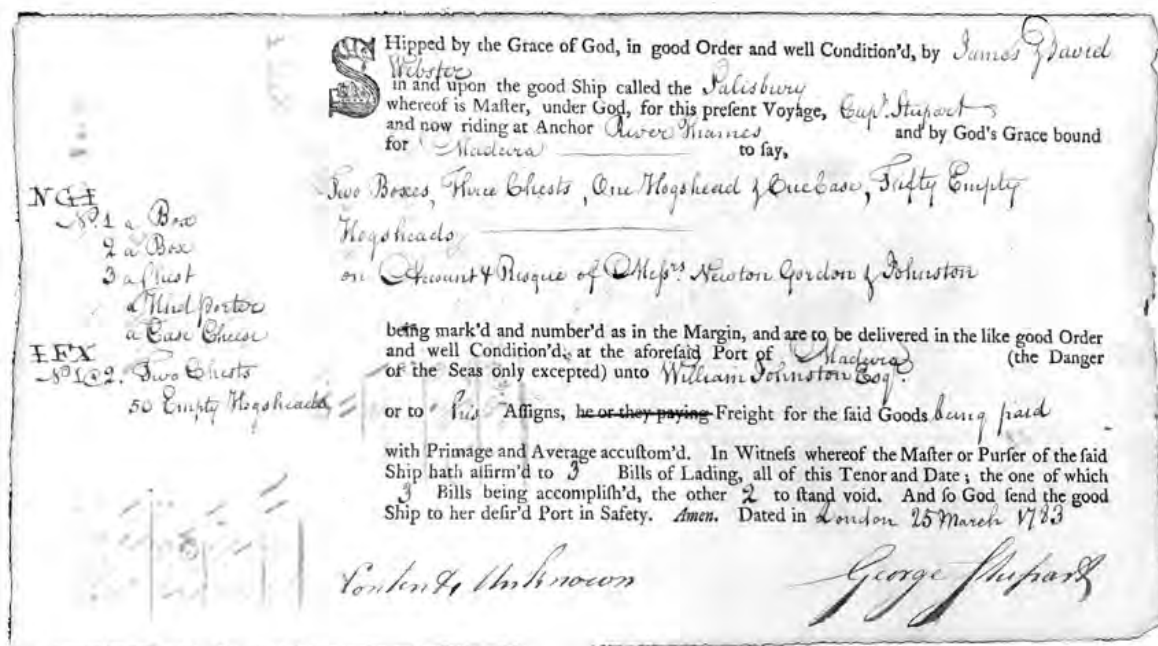 SHipped by the Grace of God, in good Order and well Condition'd, by James & David
Webster
in and upon the good Ship called the Salisbury
whereof is Maſter, under God, for this preſent Voyage, Capt. Stupart
and now riding at Anchor River Thames and by God's Grace bound
for Madeira to ſay,
Two Boxes, Three Cheſts, One Hogshead & One Case, Fifty Empty
Hogsheads
on Account & Risque of Meſsrs. Newton Gordon & Johnston
NGI
No. 1 a Box
2 a Box
3 a Cheſt
a Hhd porter
a Case Cheese
IFX
No 1@2. Two Chests
50 Empty Hogsheads
being mark'd and number'd as in the Margin, and are to be delivered in the like good Order
and well Condition'd, at the aforeſaid Port of Madeira (the Danger
of the Seas only excepted) unto William Johnston Esqr.
or to his Aſſigns, he or they paying Freight for the ſaid Goods being paid
with Primage and Average accuſtom'd. In Witneſs whereof the Maſter or Purſer of the ſaid
Ship hath affirm'd to 3 Bills of Lading, all of this Tenor and Date; the one of which
3 Bills being accompliſh'd, the other 2 to ſtand void. And ſo God ſend the good
Ship to her deſir'd Port in Safety. Amen. Dated in London 25 March 1783
Contents Unknown
George Stupart